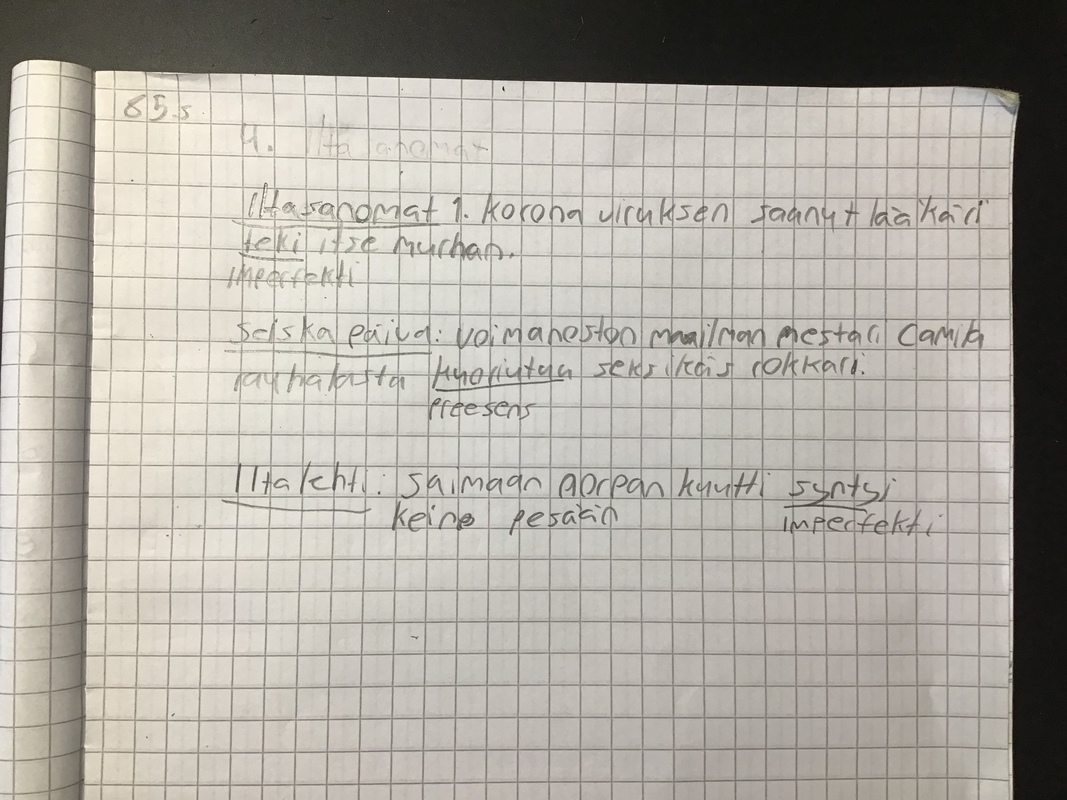 85.s
4. Iltasanomat
Iltasanomat 1. korona viruksen saanut lääkäri
teki itse murhan.
imperfekti
Seiska päivä: voimanoston maailman mestari Camilla
rauhalasta kuoriutuu seksikäs rokkari.
preesens
Iltalehti: saimaan norpan kuutti syntyi
keino pesään imperfekti